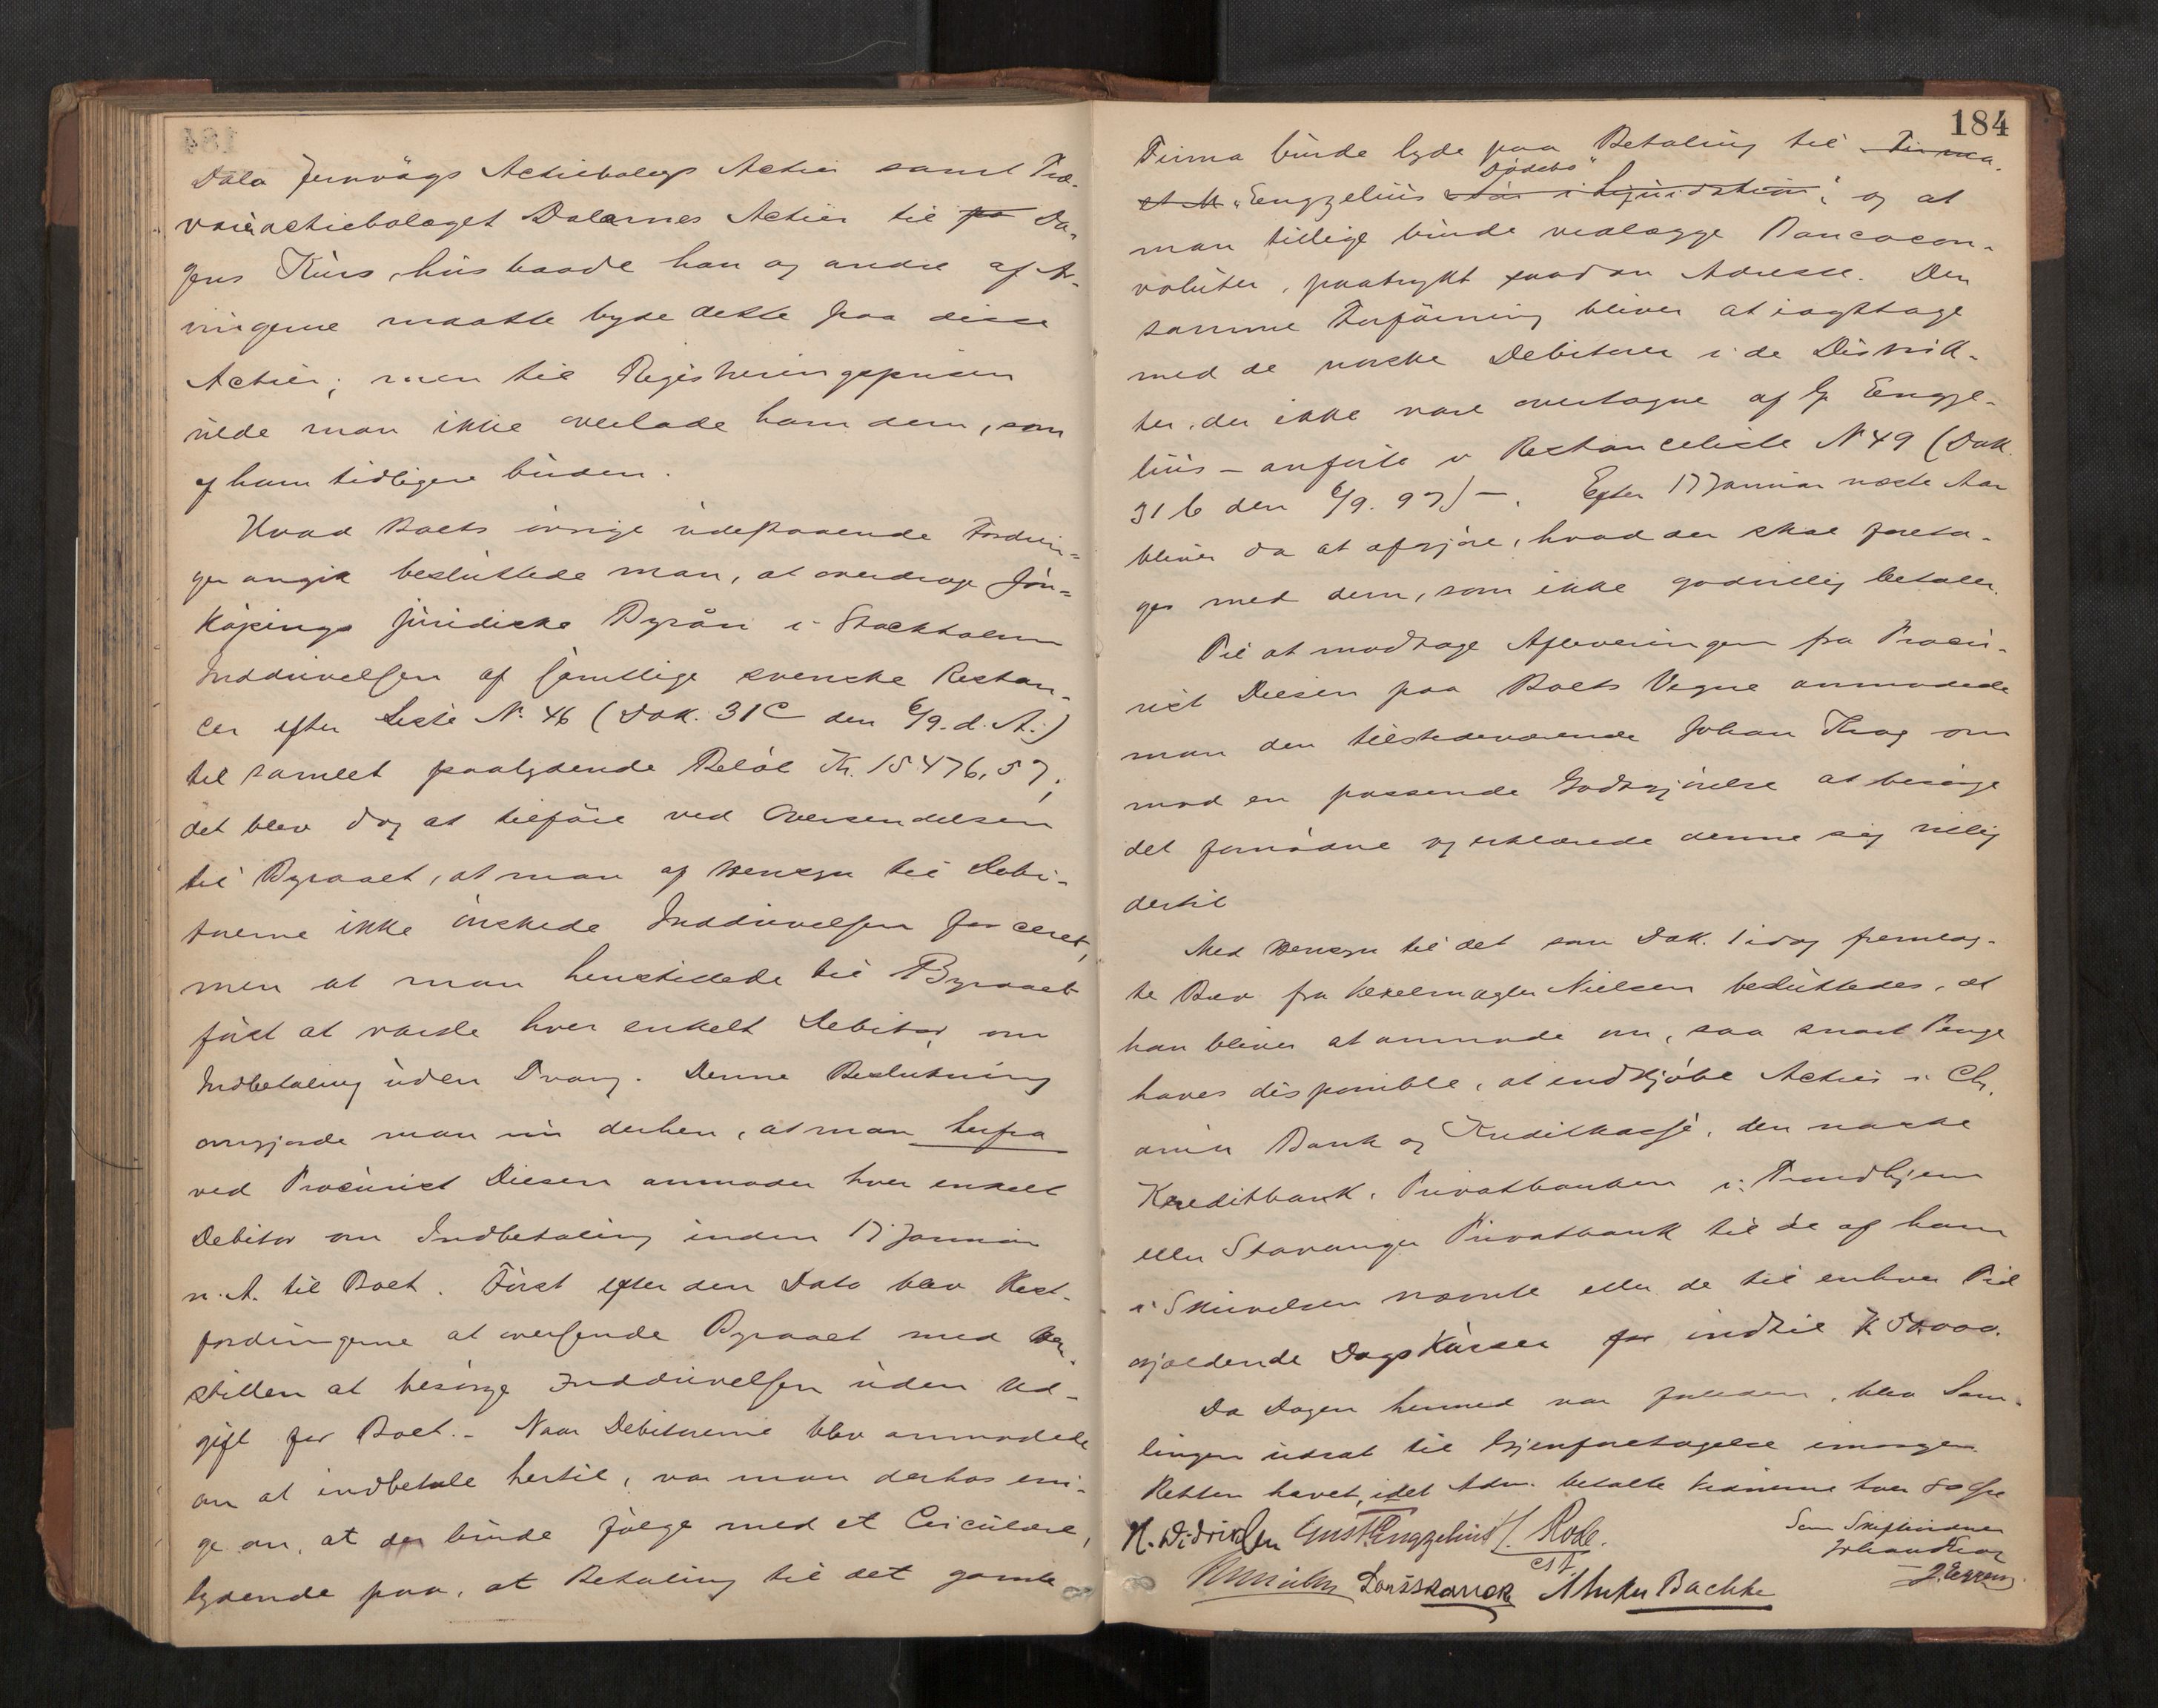 Dala Jernvägs Actiebolags Actier samt Træ-
varuactiebolaget Dalarnes Actier til Da-
gens Kurs, hvis baade han og andre af Ar-
vingerne maatte byde dette paa disse
Actier; men til Registreringsprisen
vilde man ikke overlade ham dem, som
af ham tidligere buden.
Hvad Boets øvrige udestaaende Fordrin-
ger angik besluttede man, at overdrage Jön-
köpings juridiske Byrån i Stockholm
Inddrivelsen af samtlige svenske Restan-
cer efter Liste No. 46 (Dok. 31 C den 6/9. d. A.)
til samlet paalydende Beløb Kr. 15476,57;
det blev dog at tilføie ved Oversendelsen
til Byraaet, at man af Hensyn til Debi-
torerne ikke ønskede Inddrivelsen forceret,
men at man henstillede til Byraaet
først at varsle hver enkelt Debitor om
Indbetaling uden Tvang. Denne Beslutning
omgjorde man nu derhen, at man herfra
ved Procurist Diesen anmoder hver enkelt
Debitor om Indbetaling inden 17 Januar
n. A. til Boet. Først efter den Dato blev Rest-
fordringerne at oversende Byraaet med Hen-
stillen at besørge Inddrivelsen uden Ud-
gift for Boet. - Naar Debitorerne blev anmodede
om at indbetale hertil, var man derhos eni-
ge om, at der burde følge med et Circulære,
lydende paa, at Betaling til det gamle
184
Firma burde lyde paa Betaling til Firma
Dødsbo"
"Engzelius i Liquidation", og at
man tillige burde vedlægge Bancocon-
voluter, paatrykt saadan Adresse. Den
samme Forføining bliver at iagttage
med de norske Debitorer i de Distrik-
ter, der ikke vare overtagne af G. Engze-
lius - anførte i Restanceliste No 49 (Dok.
31 b den 6/9. 97) -. Efter 17 Januar næste Aar
bliver da at afgjøre, hvad der skal foreta-
ges med dem, som ikke godvillig betaler.
Til at modtage Afleveringen fra Procu-
rist Diesen paa Boets Vegne anmodede
man den tilstedeværende Johan Krag om
mod en passende Godtgjørelse at besørge
det fornødne og erklærede denne sig villig
dertil
Med Hensyn til det som Dok. 1 idag fremlag-
te Brev fra Vexelmægler Nielsen besluttedes, at
han bliver at anmode om, saa snart Penge
haves disponible, at indkjøbe Actier i Chr.
ania Bank og Kreditkasse, den norske
Kreditbank, Privatbanken i Trondhjem
eller Stavanger Privatbank til de af ham
i Skrivelsen nævnte eller de til enhver Tid
gjældende Dagskurser for indtil K 50.000.
Da Dagen hermed var falden, blev Sam-
lingen udsat til Gjenforetagelse imorgen.
Retten hævet, idet Adm. betalte Vidnerne hver 80 Øre
H. Didriksen Gust. Engzelius J. Rode.
cst.
Bachke
Som Skiftevidner
Johan Krag